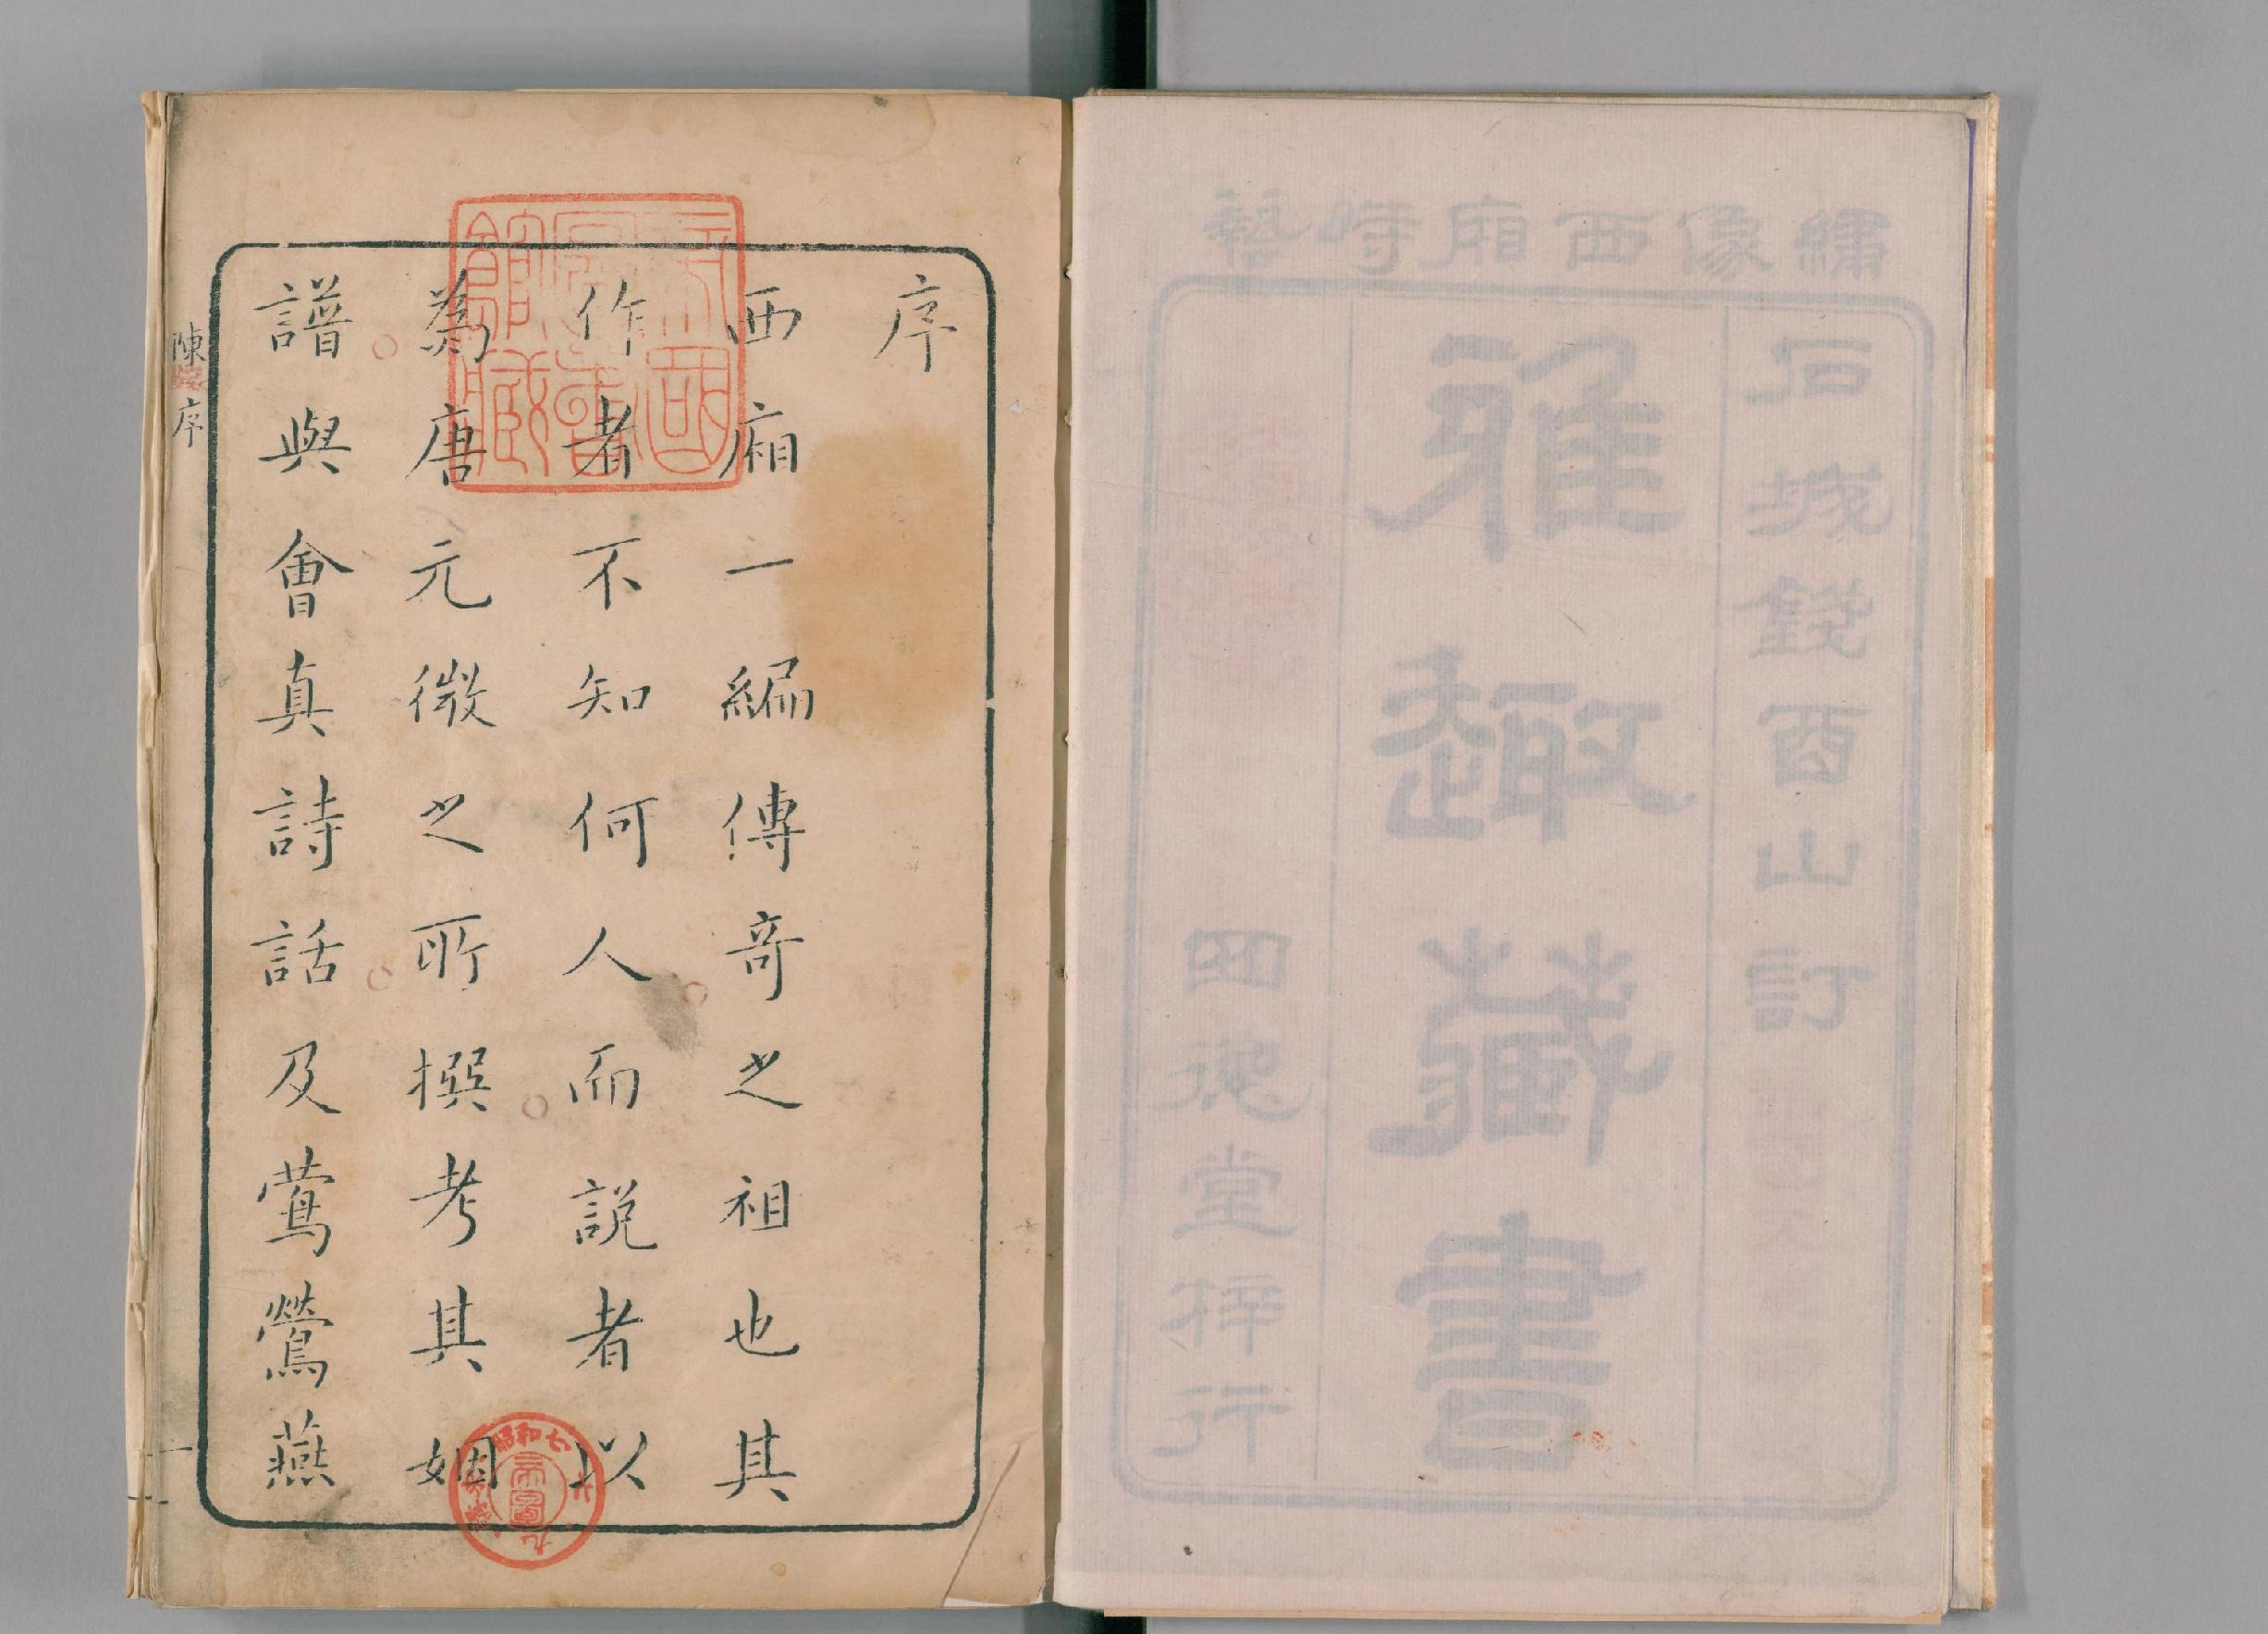 繡像西廂時藝
石城錢酉山訂
雅趣藏書
四德堂梓行
序
西廂一編傳奇之祖也其
作者不知何人而説者以
為唐元微之所撰考其姻
譜與會真詩話及鶯鶯燕
陳序
一
帝國圖書館藏
昭和七
帝圖